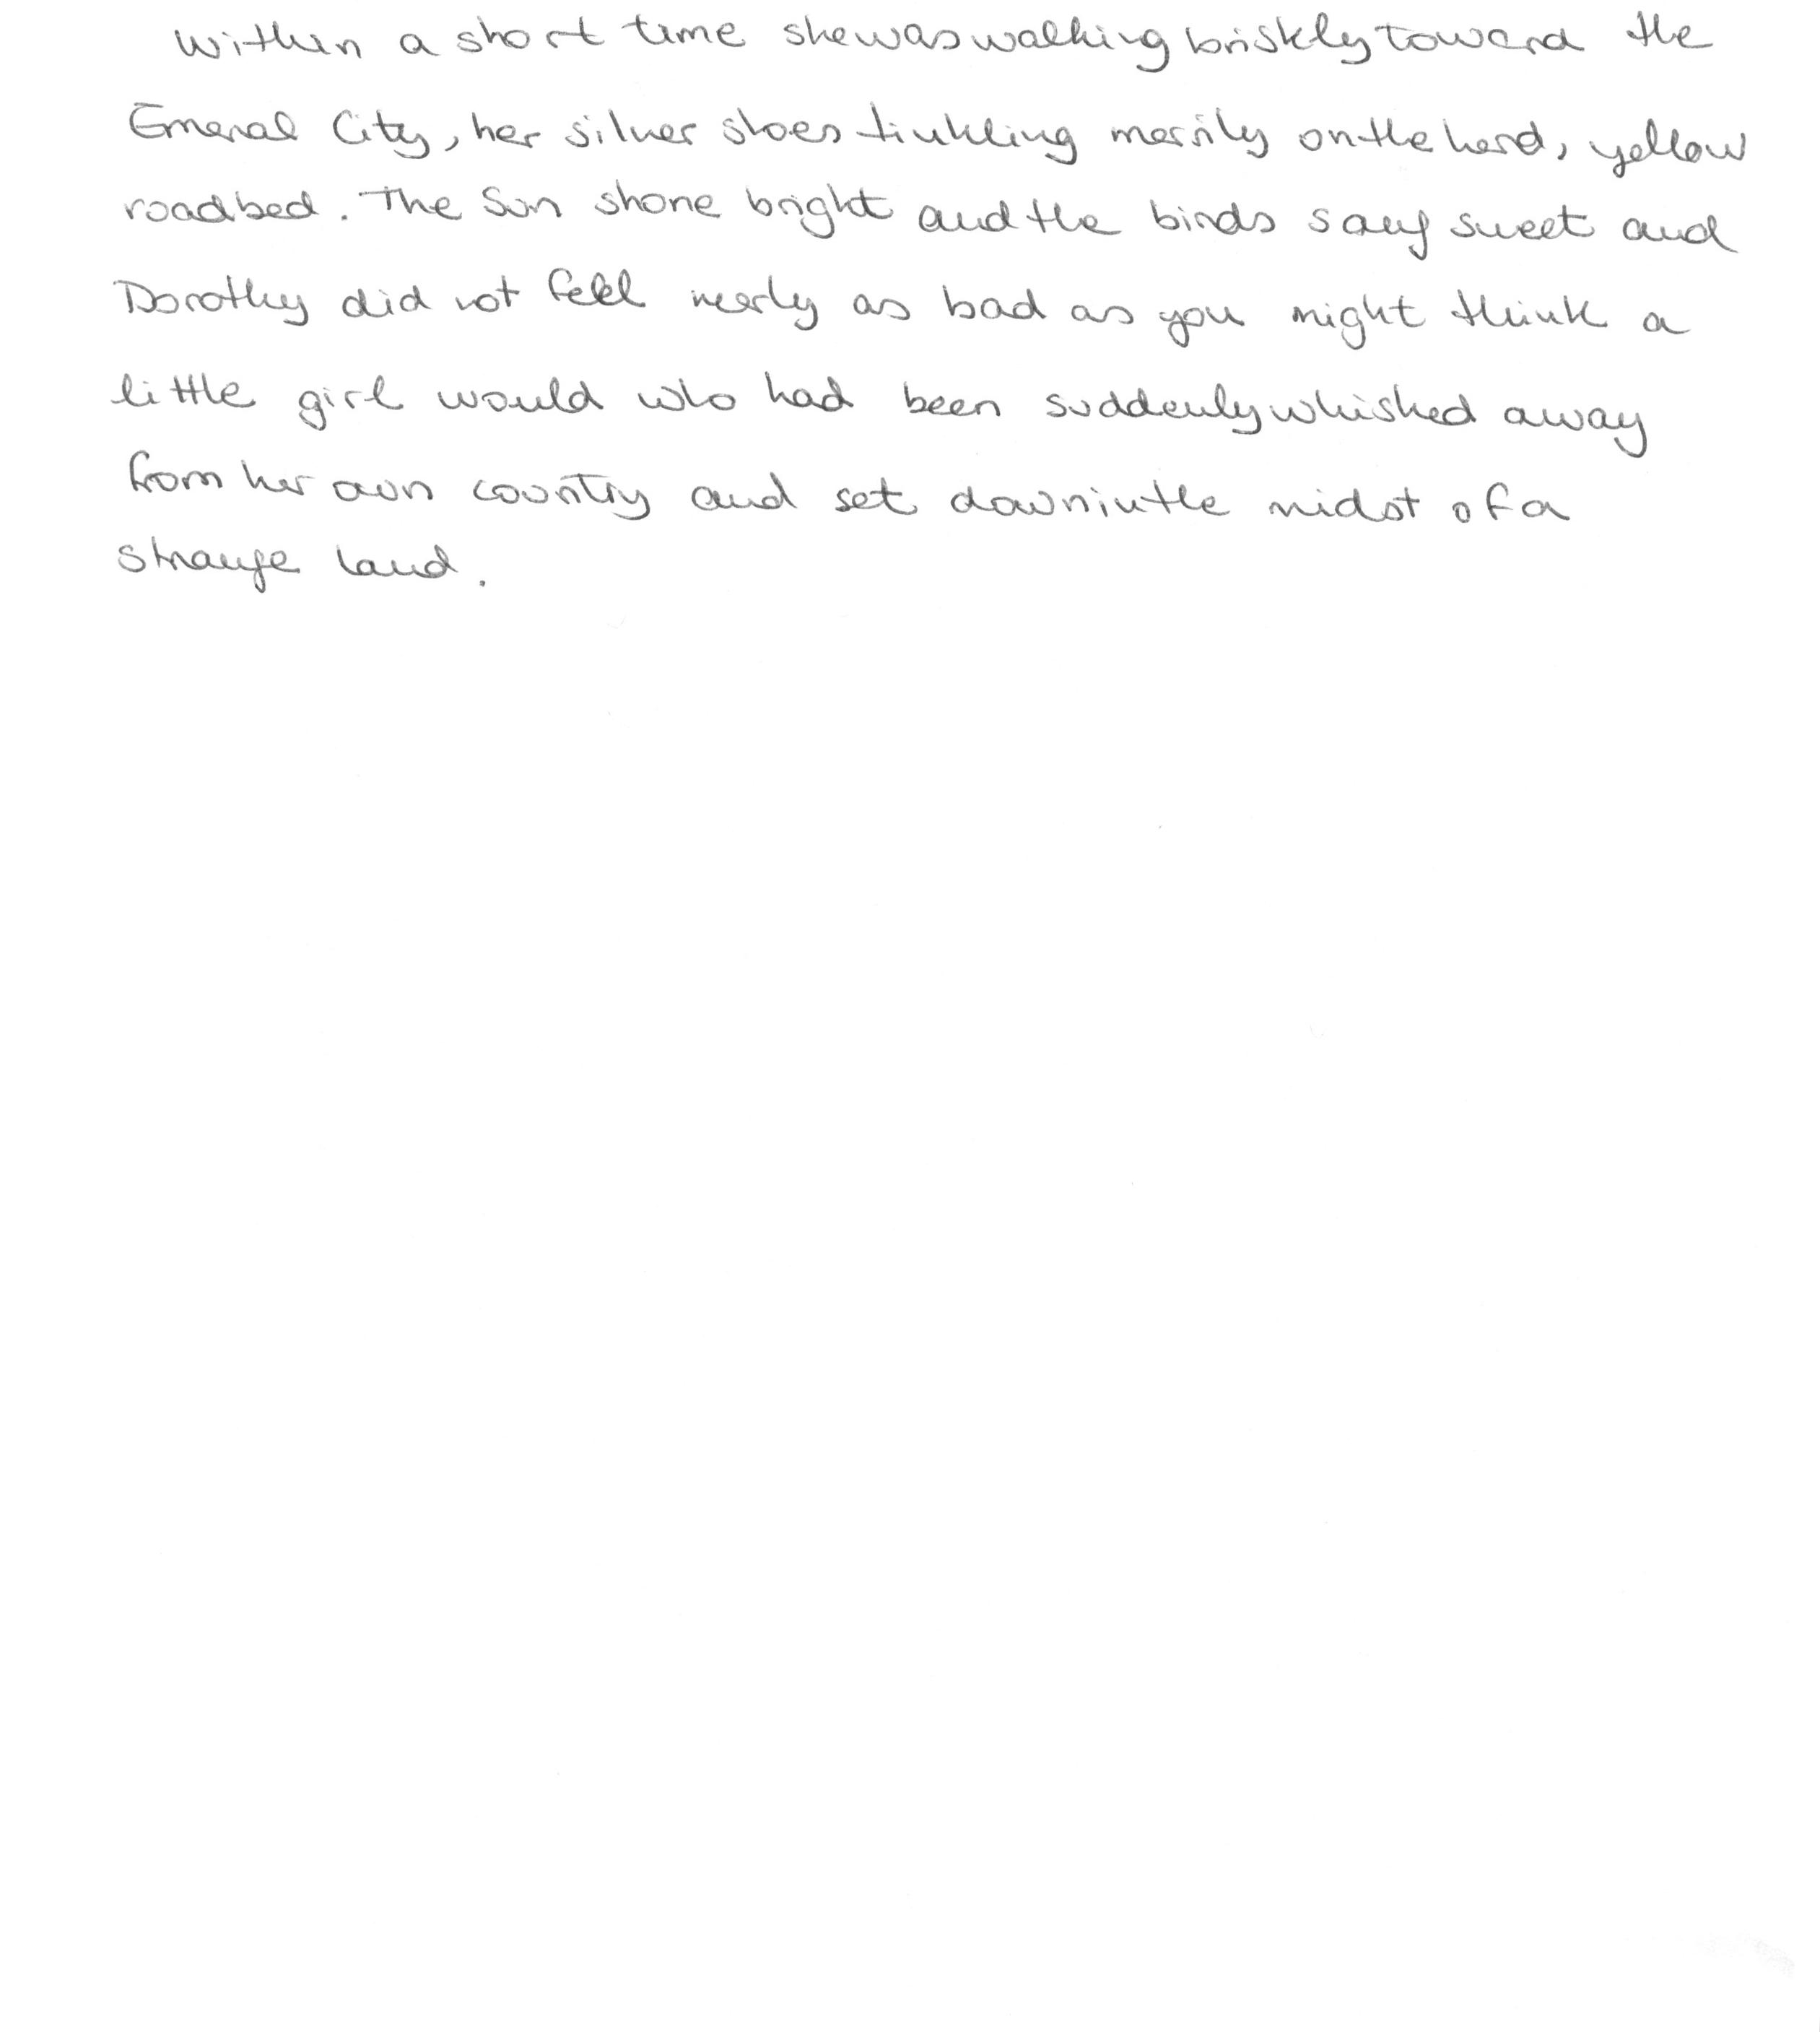 Within a short time she was walking briskly toward the
Emeral City, her silver shoes tinkling merrily on the hard, yellow
roadbed. The Sun shone bright and the birds sang sweet and
Dorothy did not feel nerly as bad as you might think a
little girl would who had been suddenly whished away
from her own country and set down in the midst of a
strange land.